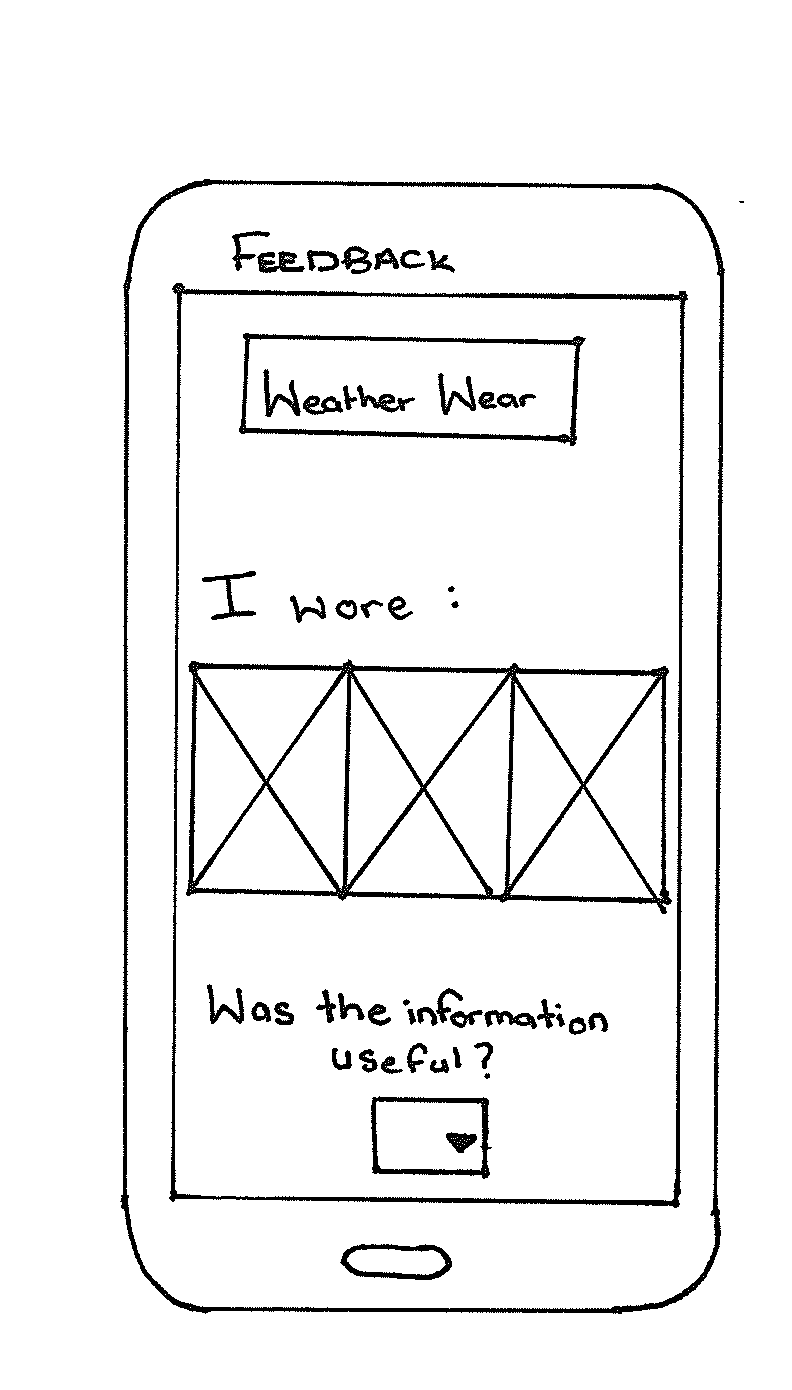 FEEDBACK
Weather Wear
I wore :
Was the information
useful?